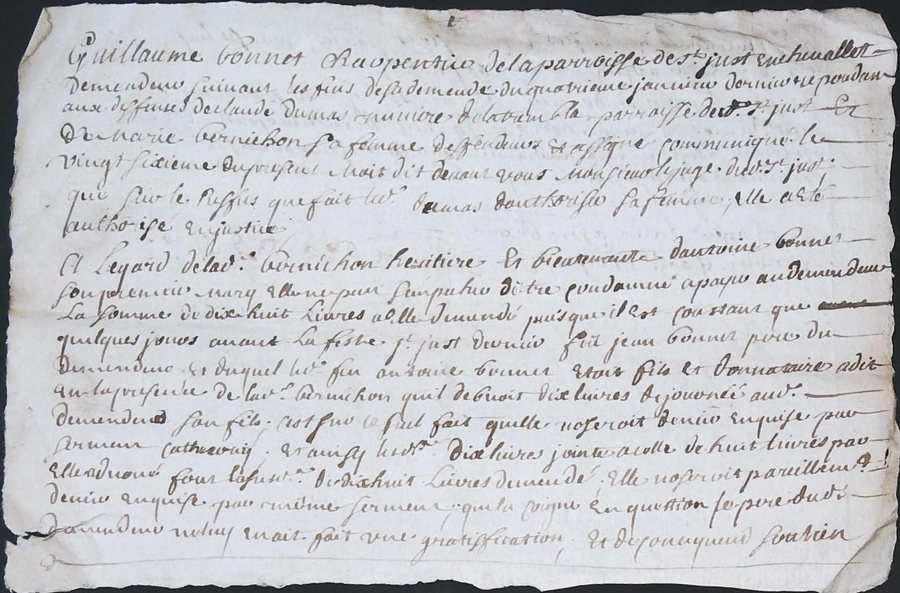 Guillaume bonnet Charpentier de la parroisse de st. just en chevallet
demendeur suivant les fins de sa demende du quatrieme janvier dernier repondan
aux deffences de claude dumas de la parroisse dud. st. just Et
De Marie bernichon sa femme deffendeurs et assigné communiqué le
vingt sixieme du present Mois dit devant vous Monsieur le juge dud. st. just
que sur le Reffus que fait led. dumas d'authoriser sa femme, elle a eté
authorisé en justice
A Legard de lad. bernichon heritiere Et bientenante d'antoine bonnet
son premier mary elle ne peut s'empecher d'etre condamné a payer au demendeur
La somme de dix huit Livres a elle demendé puisque il est constant que
quelques jours avant la feste st. just dernier feu jean bonnet pere du
demendeur et duquel led. feu antoine bonnet etoit fils et donnataire a dit
En la presence de lad. bernichon qu'il debvoit dix livres de journée aud.
demendeur son fils. c'est sur le fait quelle noseroit denier Enquise par
serment et ainsy lesd. dix livres jointe a celle de huit livres par
Elle advoué font la susd. de dix huit Livres demendé, Elle noseroit pareillemt.
denier Enquise par même serment que la vigne En question le pere dud.
demendeur ne luy en ait fait une gratiffication, Et de consequend soutien